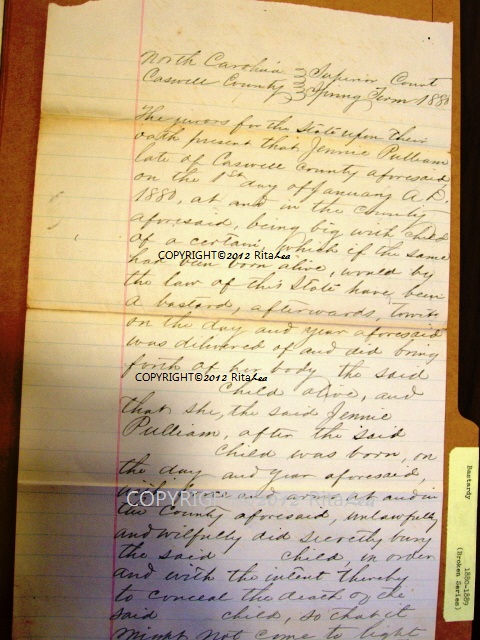 North Carolina } Superior Court
Caswell County } Spring Term 1880
The jurors for the State upon their
oath present that Jennie Pulliam
late of Caswell County aforesaid
on the 1st day of January A.D.
1880, at and in the County
aforesaid, being big with child
COPYRIGHT©2012 RitaLea
of a certain, which if the same
had been born alive, would by
the law of this State have been
a bastard, afterwards, towit:
on the day and year aforesaid
was delivered of and did bring
forth of her body the said
COPYRIGHT©2012 RitaLea
child alive, and
that she, the said Jennie
Pulliam, after the said
child was born, on
the day and year aforesaid,
with force and arms at and in
COPYRIGHT©2012 RitaLea
the County aforesaid, unlawfully
and wilfully did secretly bury
the said child, in order
and with the intent thereby
to conceal the death of the
said child, so that it
might not come to light
Bastardy 1880-1889
(Broken Series)